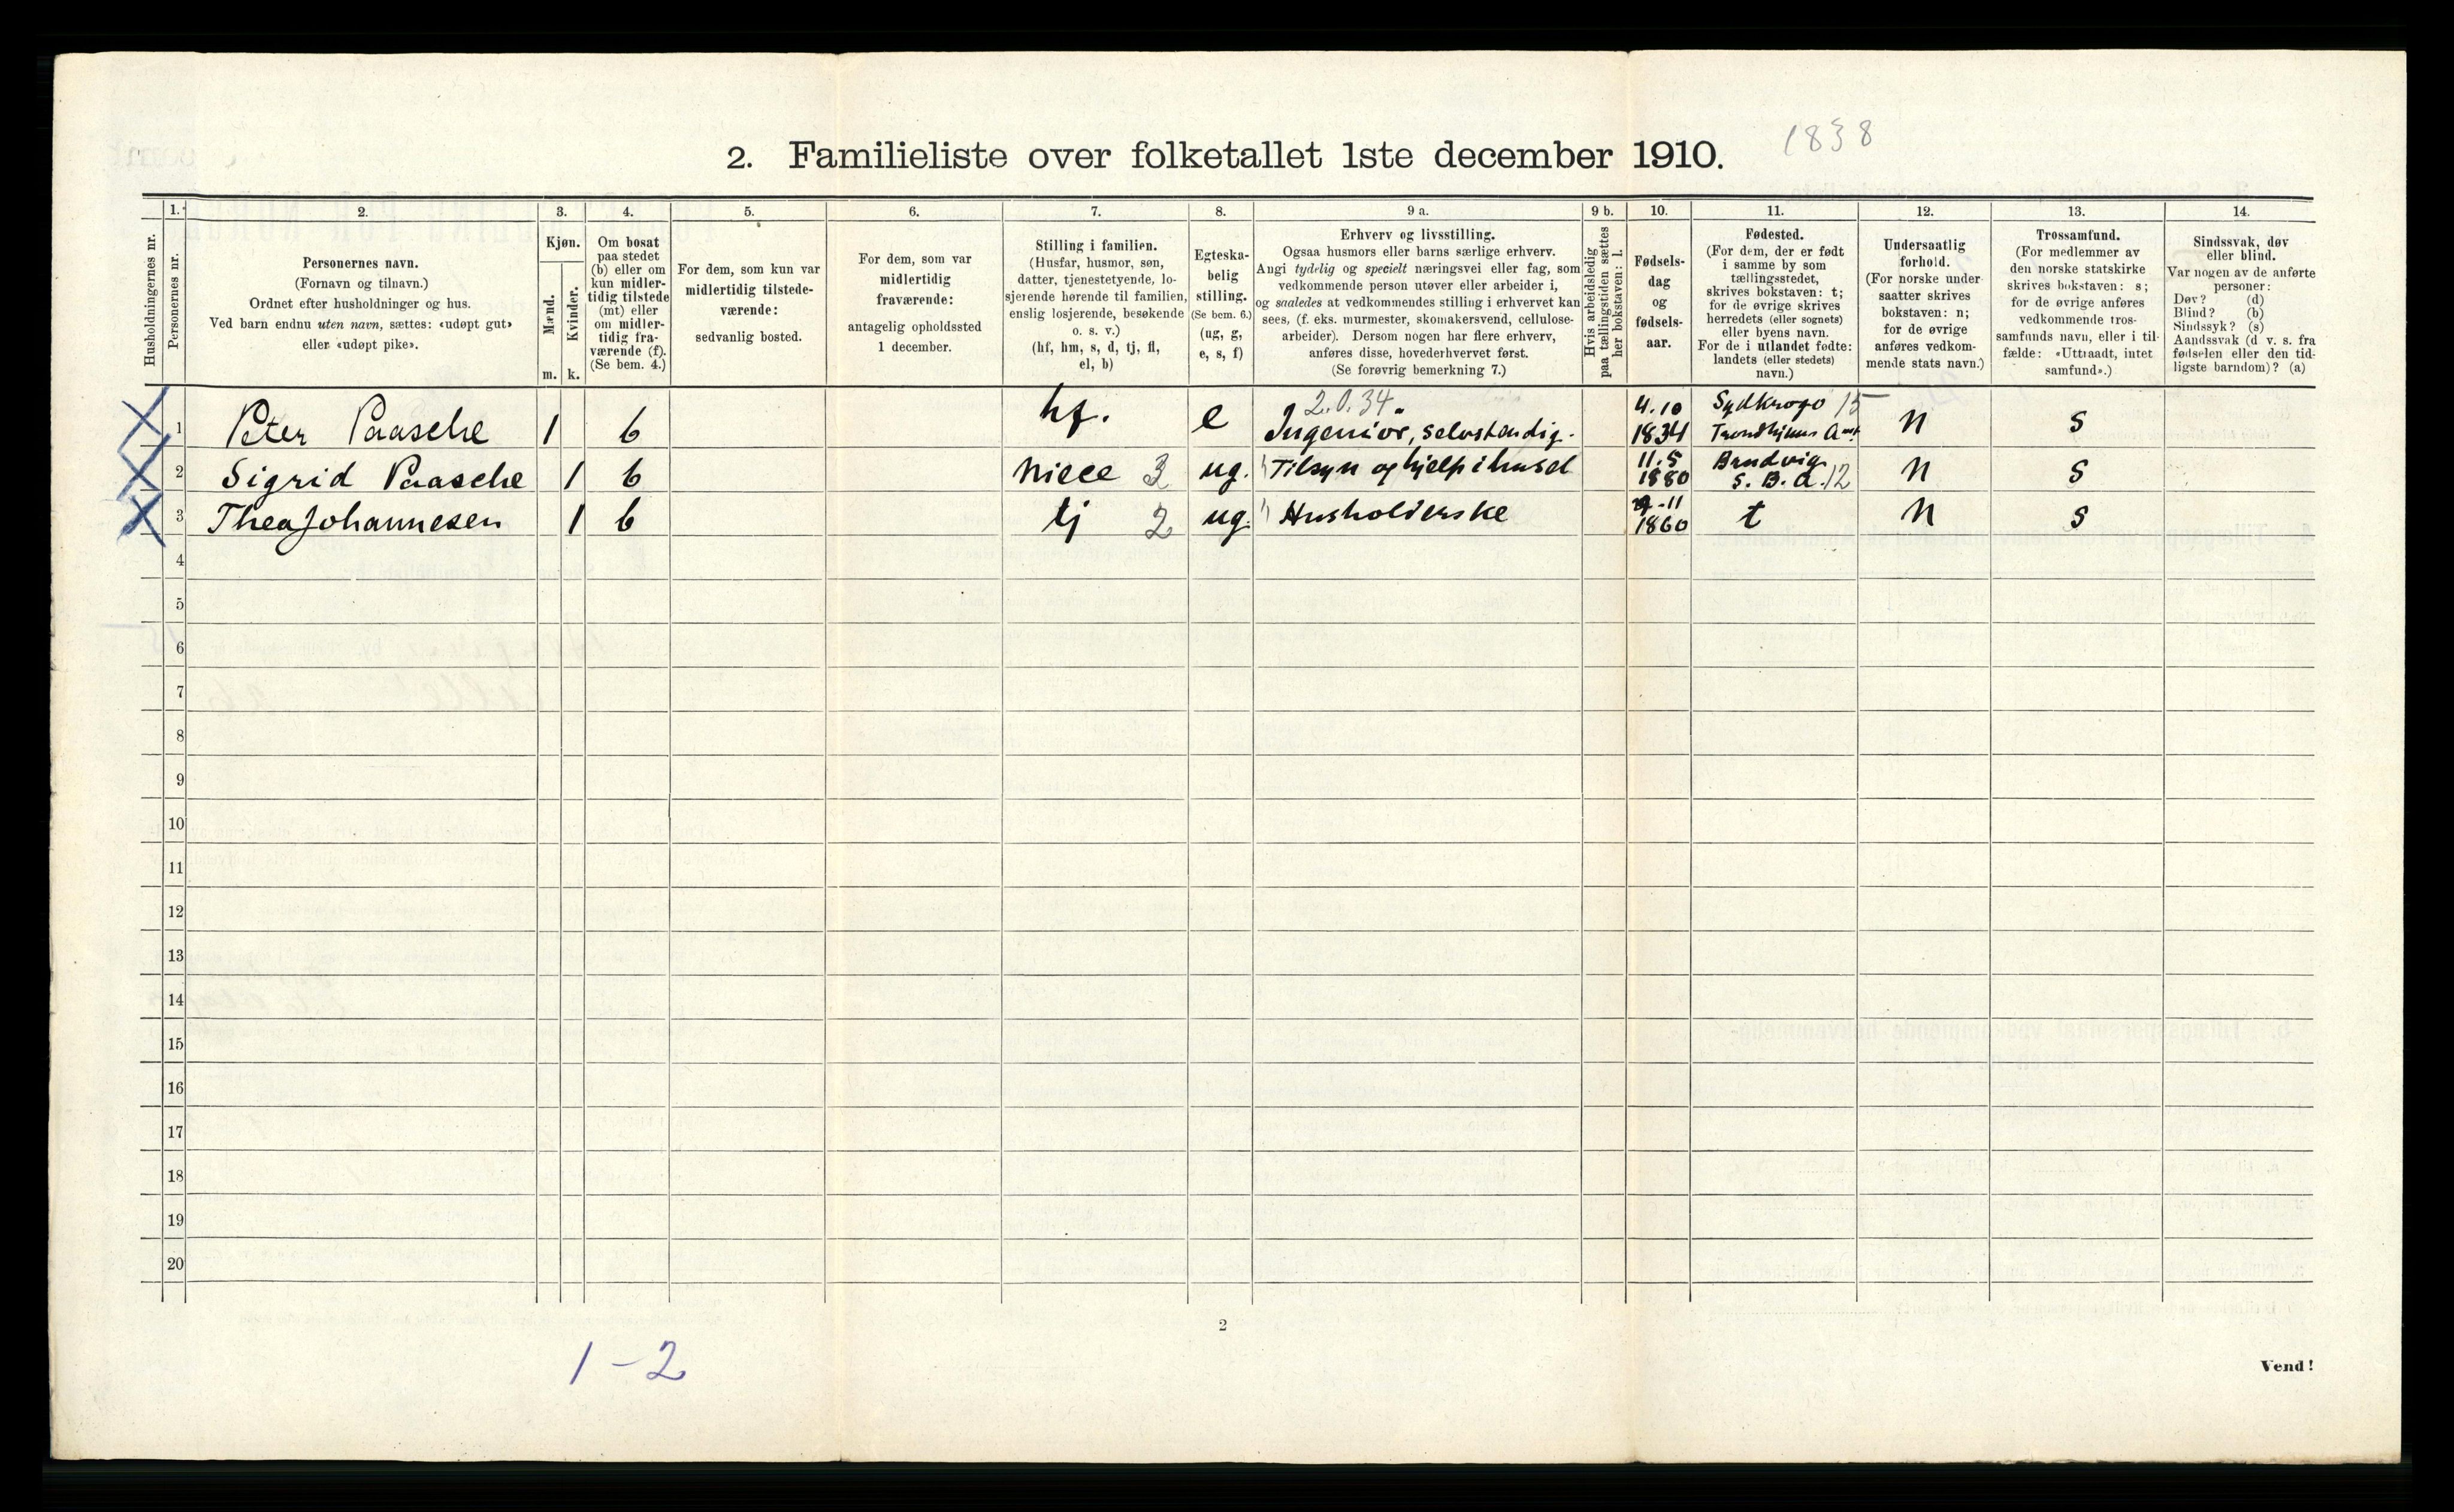 1838
2. Familieliste over folketallet 1ste december 1910.
Husholdningernes nr.
1.
Personernes nr.
2.
Personernes navn.
(Fornavn og tilnavn.)
Ordnet efter husholdninger og hus.
Ved barn endnu uten navn, sættes: «udøpt gut»
eller «udøpt pike».
3.
Kjøn.
Mænd.
m.
Kvinder.
k.
4.
Om bosat
paa stedet
(b) eller om
kun midler-
tidig tilstede
(mt) eller
om midler-
tidig fra-
værende (f).
(Se bem. 4.)
5.
For dem, som kun var
midlertidig tilstede-
værende:
sedvanlig bosted.
6.
For dem, som var
midlertidig
fraværende:
antagelig opholdssted
1 december.
7.
Stilling i familien.
(Husfar, husmor, søn,
datter, tjenestetyende, lo-
sjerende hørende til familien,
enslig losjerende, besøkende
o. s. v.)
(hf, hm, s, d, tj, fl,
el, b)
8.
Egteska-
belig
stilling.
(Se bem. 6.)
(ug, g,
e, s, f)
9 a.
Erhverv og livsstilling.
Ogsaa husmors eller barns særlige erhverv.
Angi tydelig og specielt næringsvei eller fag, som
vedkommende person utøver eller arbeider i,
og saaledes at vedkommendes stilling i erhvervet kan
sees, (f. eks. murmester, skomakersvend, cellulose-
arbeider). Dersom nogen har flere erhverv,
anføres disse, hovederhvervet først.
(Se forøvrig bemerkning 7.)
9 b.
Hvis arbeidsledig
paa tællingstiden sættes
her bokstaven: l.
10.
Fødsels-
dag
og
fødsels-
aar.
11.
Fødested.
(For dem, der er født
i samme by som
tællingsstedet,
skrives bokstaven: t;
for de øvrige skrives
herredets (eller sognets)
eller byens navn.
For de i utlandet fødte:
landets (eller stedets)
navn.)
12.
Undersaatlig
forhold.
(For norske under-
saatter skrives
bokstaven: n;
for de øvrige
anføres vedkom-
mende stats navn.)
13.
Trossamfund.
(For medlemmer av
den norske statskirke
skrives bokstaven: s;
for de øvrige anføres
vedkommende tros-
samfunds navn, eller i til-
fælde: «Uttraadt, intet
samfund».)
14.
Sindssvak, døv
eller blind.
Var nogen av de anførte
personer:
Døv? (d)
Blind? (b)
Sindssyk? (s)
Aandssvak (d v. s. fra
fødselen eller den tid-
ligste barndom)? (a)
2.0.34
1 Peter Paasche 1 b hf. e Ingeniør, selvstendig. 4.10 1834 15 Trondhjems Amt n s
2 Sigrid Paasche 1 b Niece 3 ug. Tilsyn og hjelp i huset 11.5 1880 S. B. A. 12 n s
3 Thea Johannesen 1 b tj 2 ug. Husholderske 11 1860 t n s
4
5
6
7
8
9
10
11
12
13
14
15
16
17
18
19
20
2
1-2
Vend!